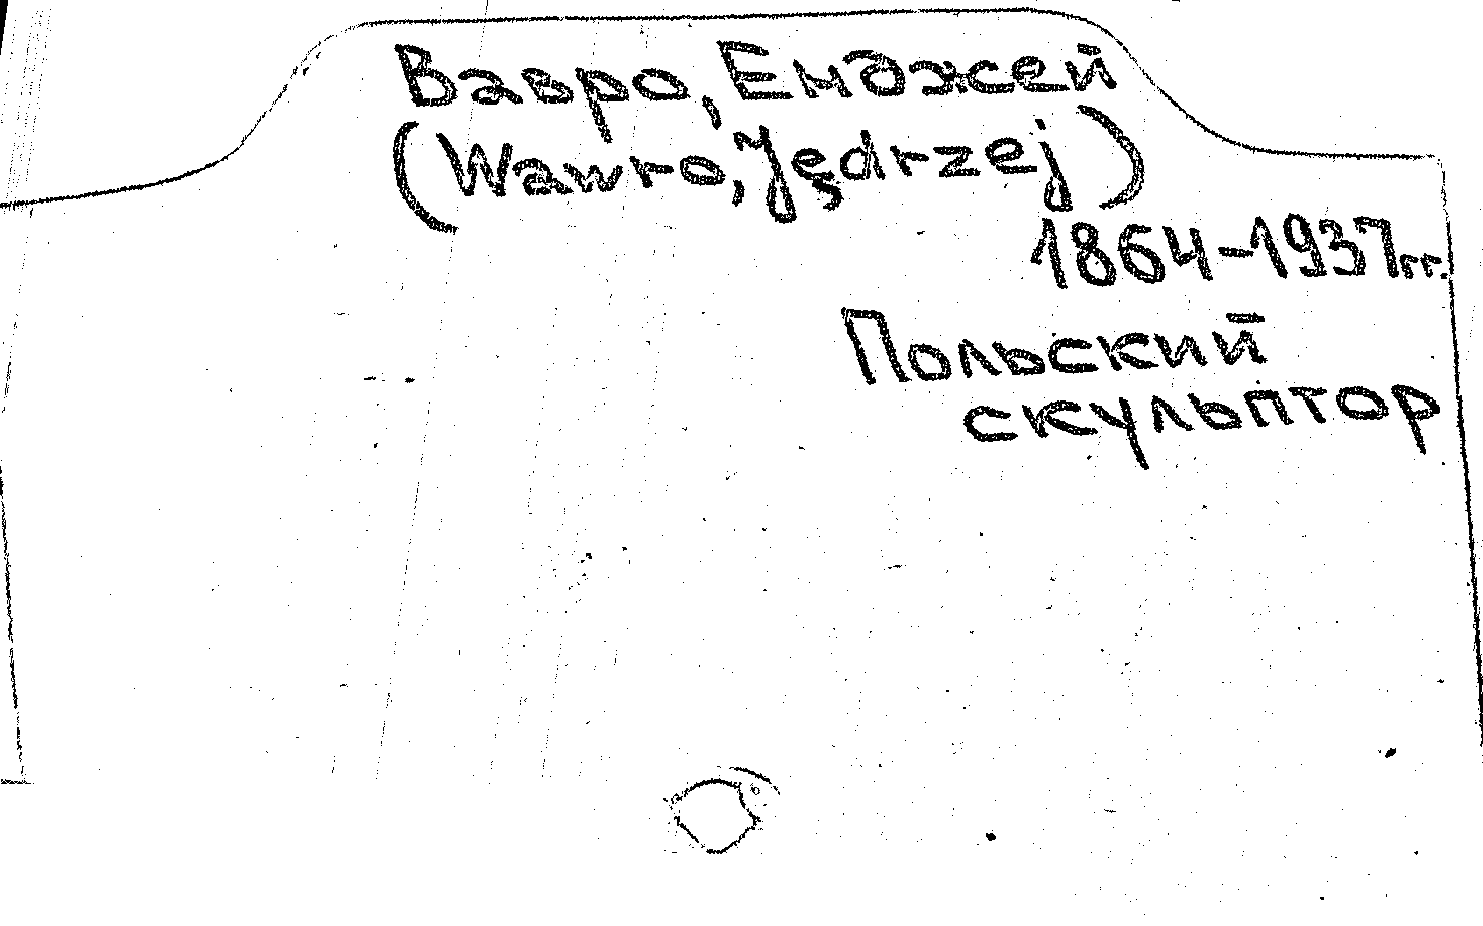 Вавро, Емджей
(Wawro, Jędrzej)
1864-1937гг.
Польский
скульптор